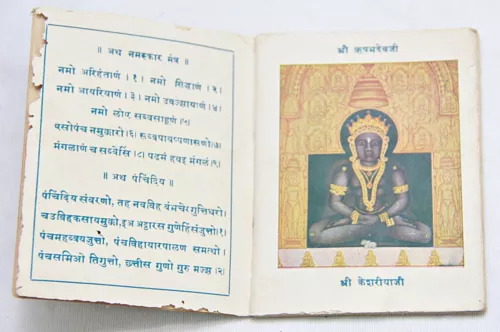 ॥ अथ नमस्कार मंत्र ॥
नमो अरिहंताणं ।१। नमो सिद्धाणं ।२।
नमो आयरियाणं ।३। नमो उवज्झायाणं ।४।
नमो लोए सव्वसाहूणं ।५।
एसोपंच नमुक्कारो।६। सव्वपावप्पणासणो।७।
मंगलाणं च सव्वेसिं ।८। पढमं हवइ मंगलं।९।
॥ अथ पंचिंदिय ॥
पंचिंदिय संवरणो, तह नवविह बंभचेरगुत्तिधरो।
चउविहकसायमुक्को,इअ अट्ठारस गुणेहिंसंजुत्तो।१।
पंचमहव्वयजुत्तो, पंचविहायारपालण समत्थो।
पंचसमिओ तिगुत्तो, छत्तीस गुणो गुरु मज्झ।२।
श्री ऋषभदेवजी
श्री केशरीयाजी